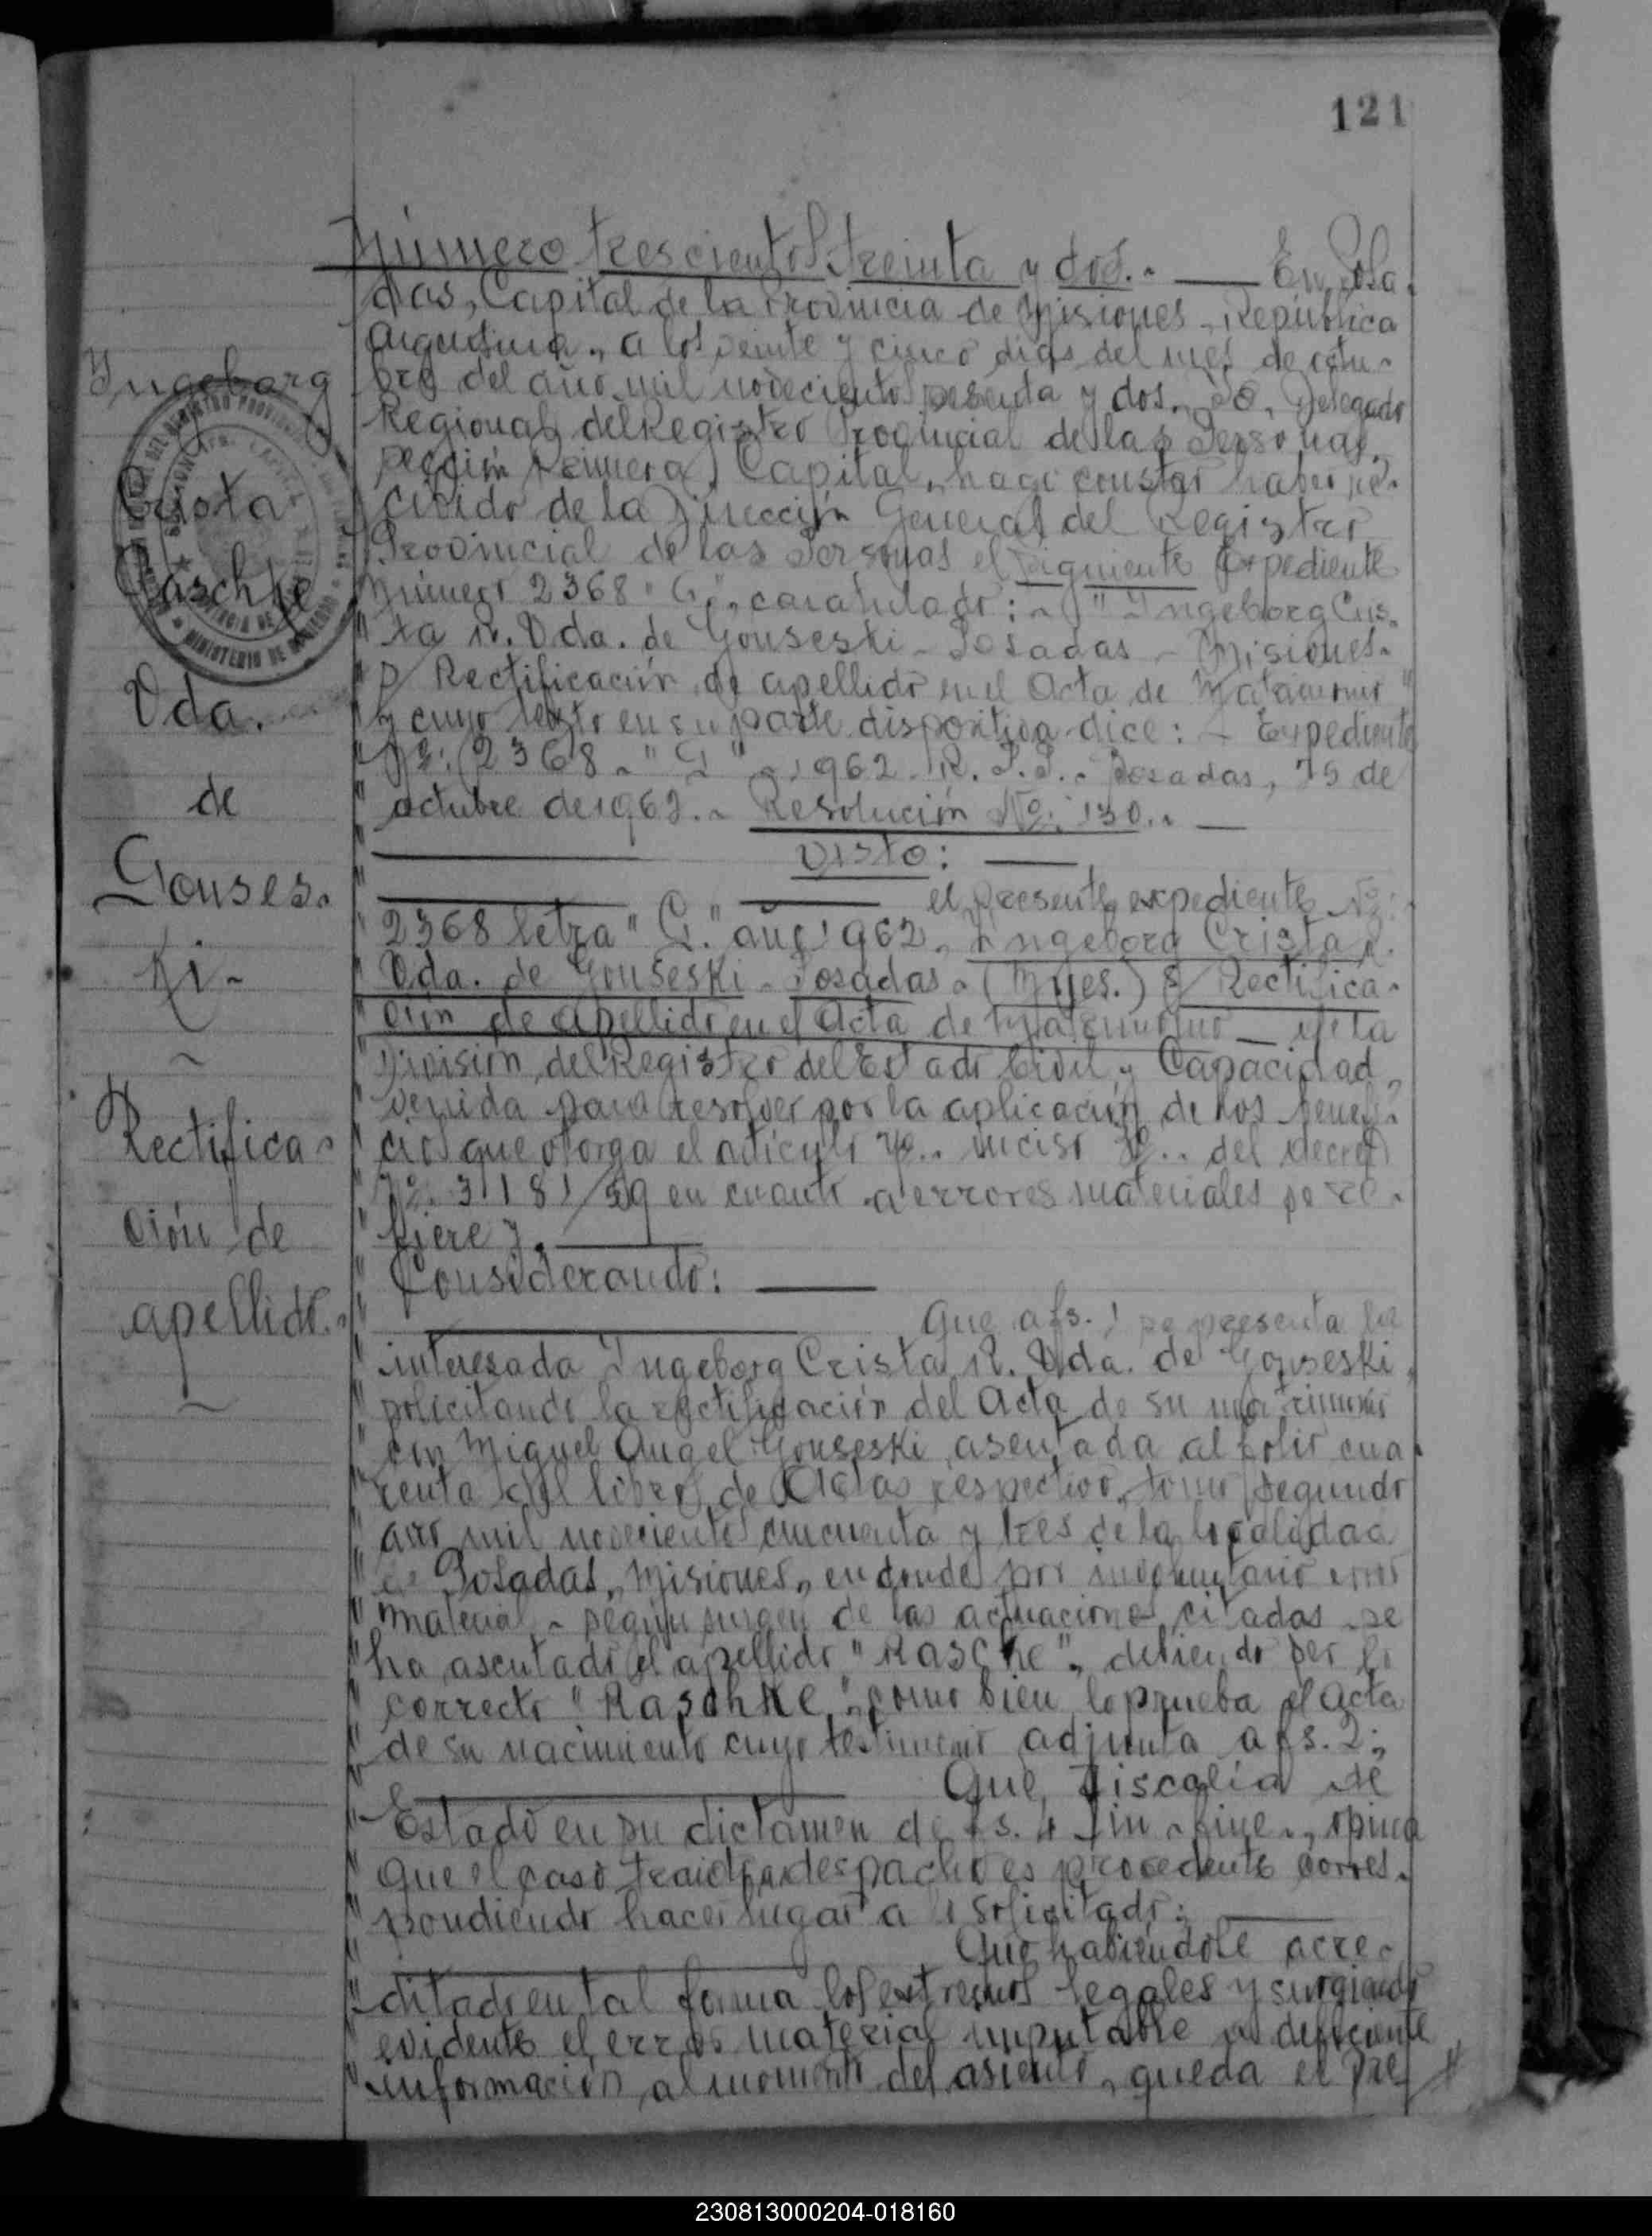 121
Número trescientos treinta y dos.- En Posa-
das, Capital de la Provincia de Misiones, República
Argentina, a los veinte y cinco días del mes de octu-
bre del año mil novecientos sesenta y dos, Yo, Delegado
Regional del Registro Provincial de las Personas,
Sección Primera, Capital, hago constar haber re-
cibido de la Dirección General del Registro
Provincial de las Personas el siguiente Expediente
Número 2368 "G", caratulado: "Ingeborg Cris-
" ta R. Vda. de Gouseski - Posadas - Misiones-
" s/ Rectificación de apellido en el Acta de Matrimonio"
" y cuyo texto en su parte dispositiva dice: - Expediente
" Nº: 2368 - "G" - 1962 - R. P. P. - Posadas, 15 de
" octubre de 1962.- Resolución Nº: 130.-
" Visto:
" el presente expediente Nº:
" 2368 letra "G." año 1962, Ingeborg Crista R.
" Vda. de Gouseski - Posadas - (Mnes.) s/ Rectifica-
" ción de apellido en el Acta de Matrimonio - de la
" División del Registro del Estado Civil y Capacidad,
" venida para resolver por la aplicación de los benefi-
" cios que otorga el artículo inciso del Decreto
" Nº. 3181/59 en cuanto a errores materiales se re-
" fiere y,
" Considerando:
" Que a fs. 1 se presenta la
" interesada Ingeborg Crista R. Vda. de Gouseski,
" solicitando la rectificación del Acta de su matrimonio
" con Miguel Angel Gouseski, asentada al folio cua-
" renta del libro de Actas respectivo, tomo segundo
" año mil novecientos cincuenta y tres de la localidad
" de Posadas, Misiones, en donde por involuntario error
" material - según surgen de las actuaciones citadas - se
" ha asentado el apellido "Rasche", debiendo ser lo
" correcto "Raschke", como bien lo prueba el acta
" de su nacimiento cuyo testimonio adjunta a fs. 2;
" Que, Fiscalía de
" Estado en su dictamen de fs. 4 in-fine-, opina
" que el caso traído a despacho es procedente corres-
" pondiendo hacer lugar a lo solicitado;
" Que habiéndose acre-
" ditado en tal forma los extremos legales y surgiendo
" evidente el error material imputable a deficiente
" información al momento del asiento, queda el pre-
Ingeborg
Crista
Raschke
Vda.
de
Gouses-
ki-
Rectifica-
ción de
apellido.-
230813000204-018160